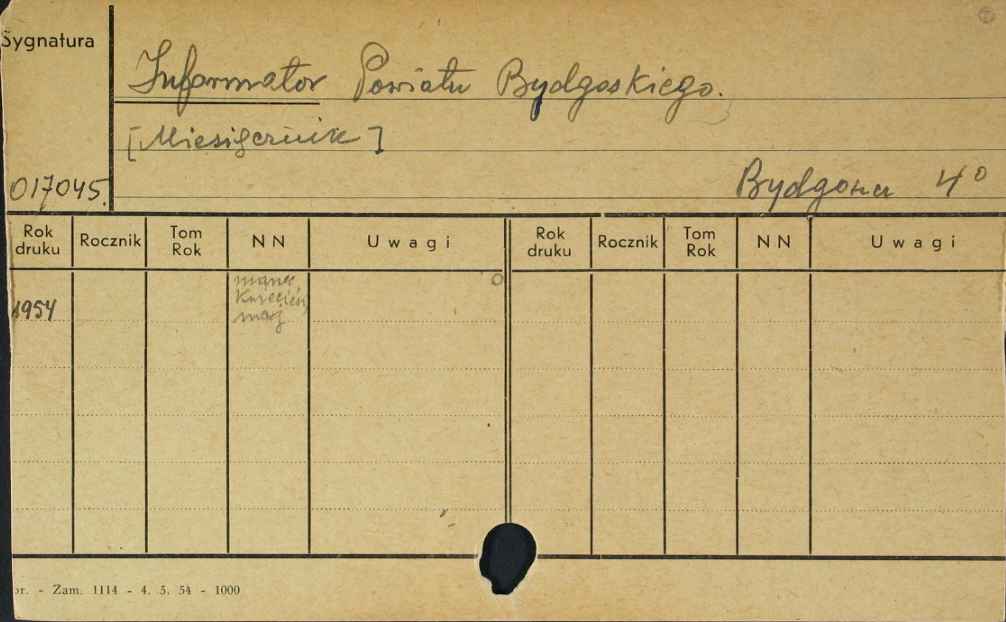 Sygnatura
Informator Powiatu Bydgoskiego.
[Miesięcznik]
017045.
Bydgoszcz 4°
Rok druku Rocznik Tom Rok NN Uwagi Rok druku Rocznik Tom Rok NN Uwagi
marzec
kwiecień
1954 maj
or. - Zam. 1114 - 4. 5. 54 - 1000